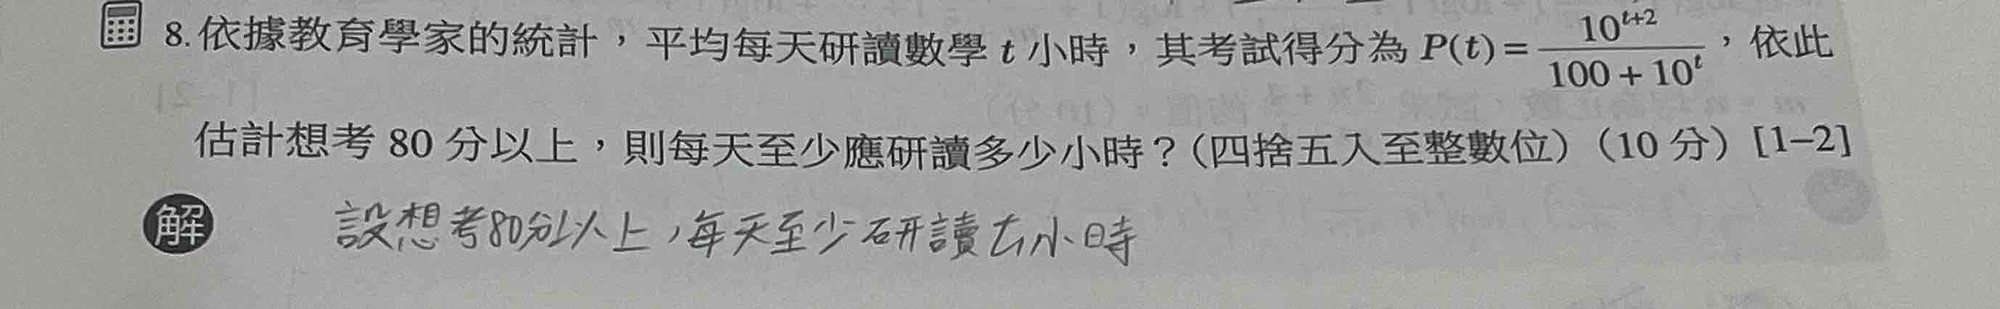 8. 依據教育學家的統計，平均每天研讀數學 t 小時，其考試得分為 P(t) = \frac{10^{t+2}}{100 + 10^t}，依此
估計想考 80 分以上，則每天至少應研讀多少小時？（四捨五入至整數位）（10 分）[1–2]
解 設想考80分以上，每天至少研讀t小時